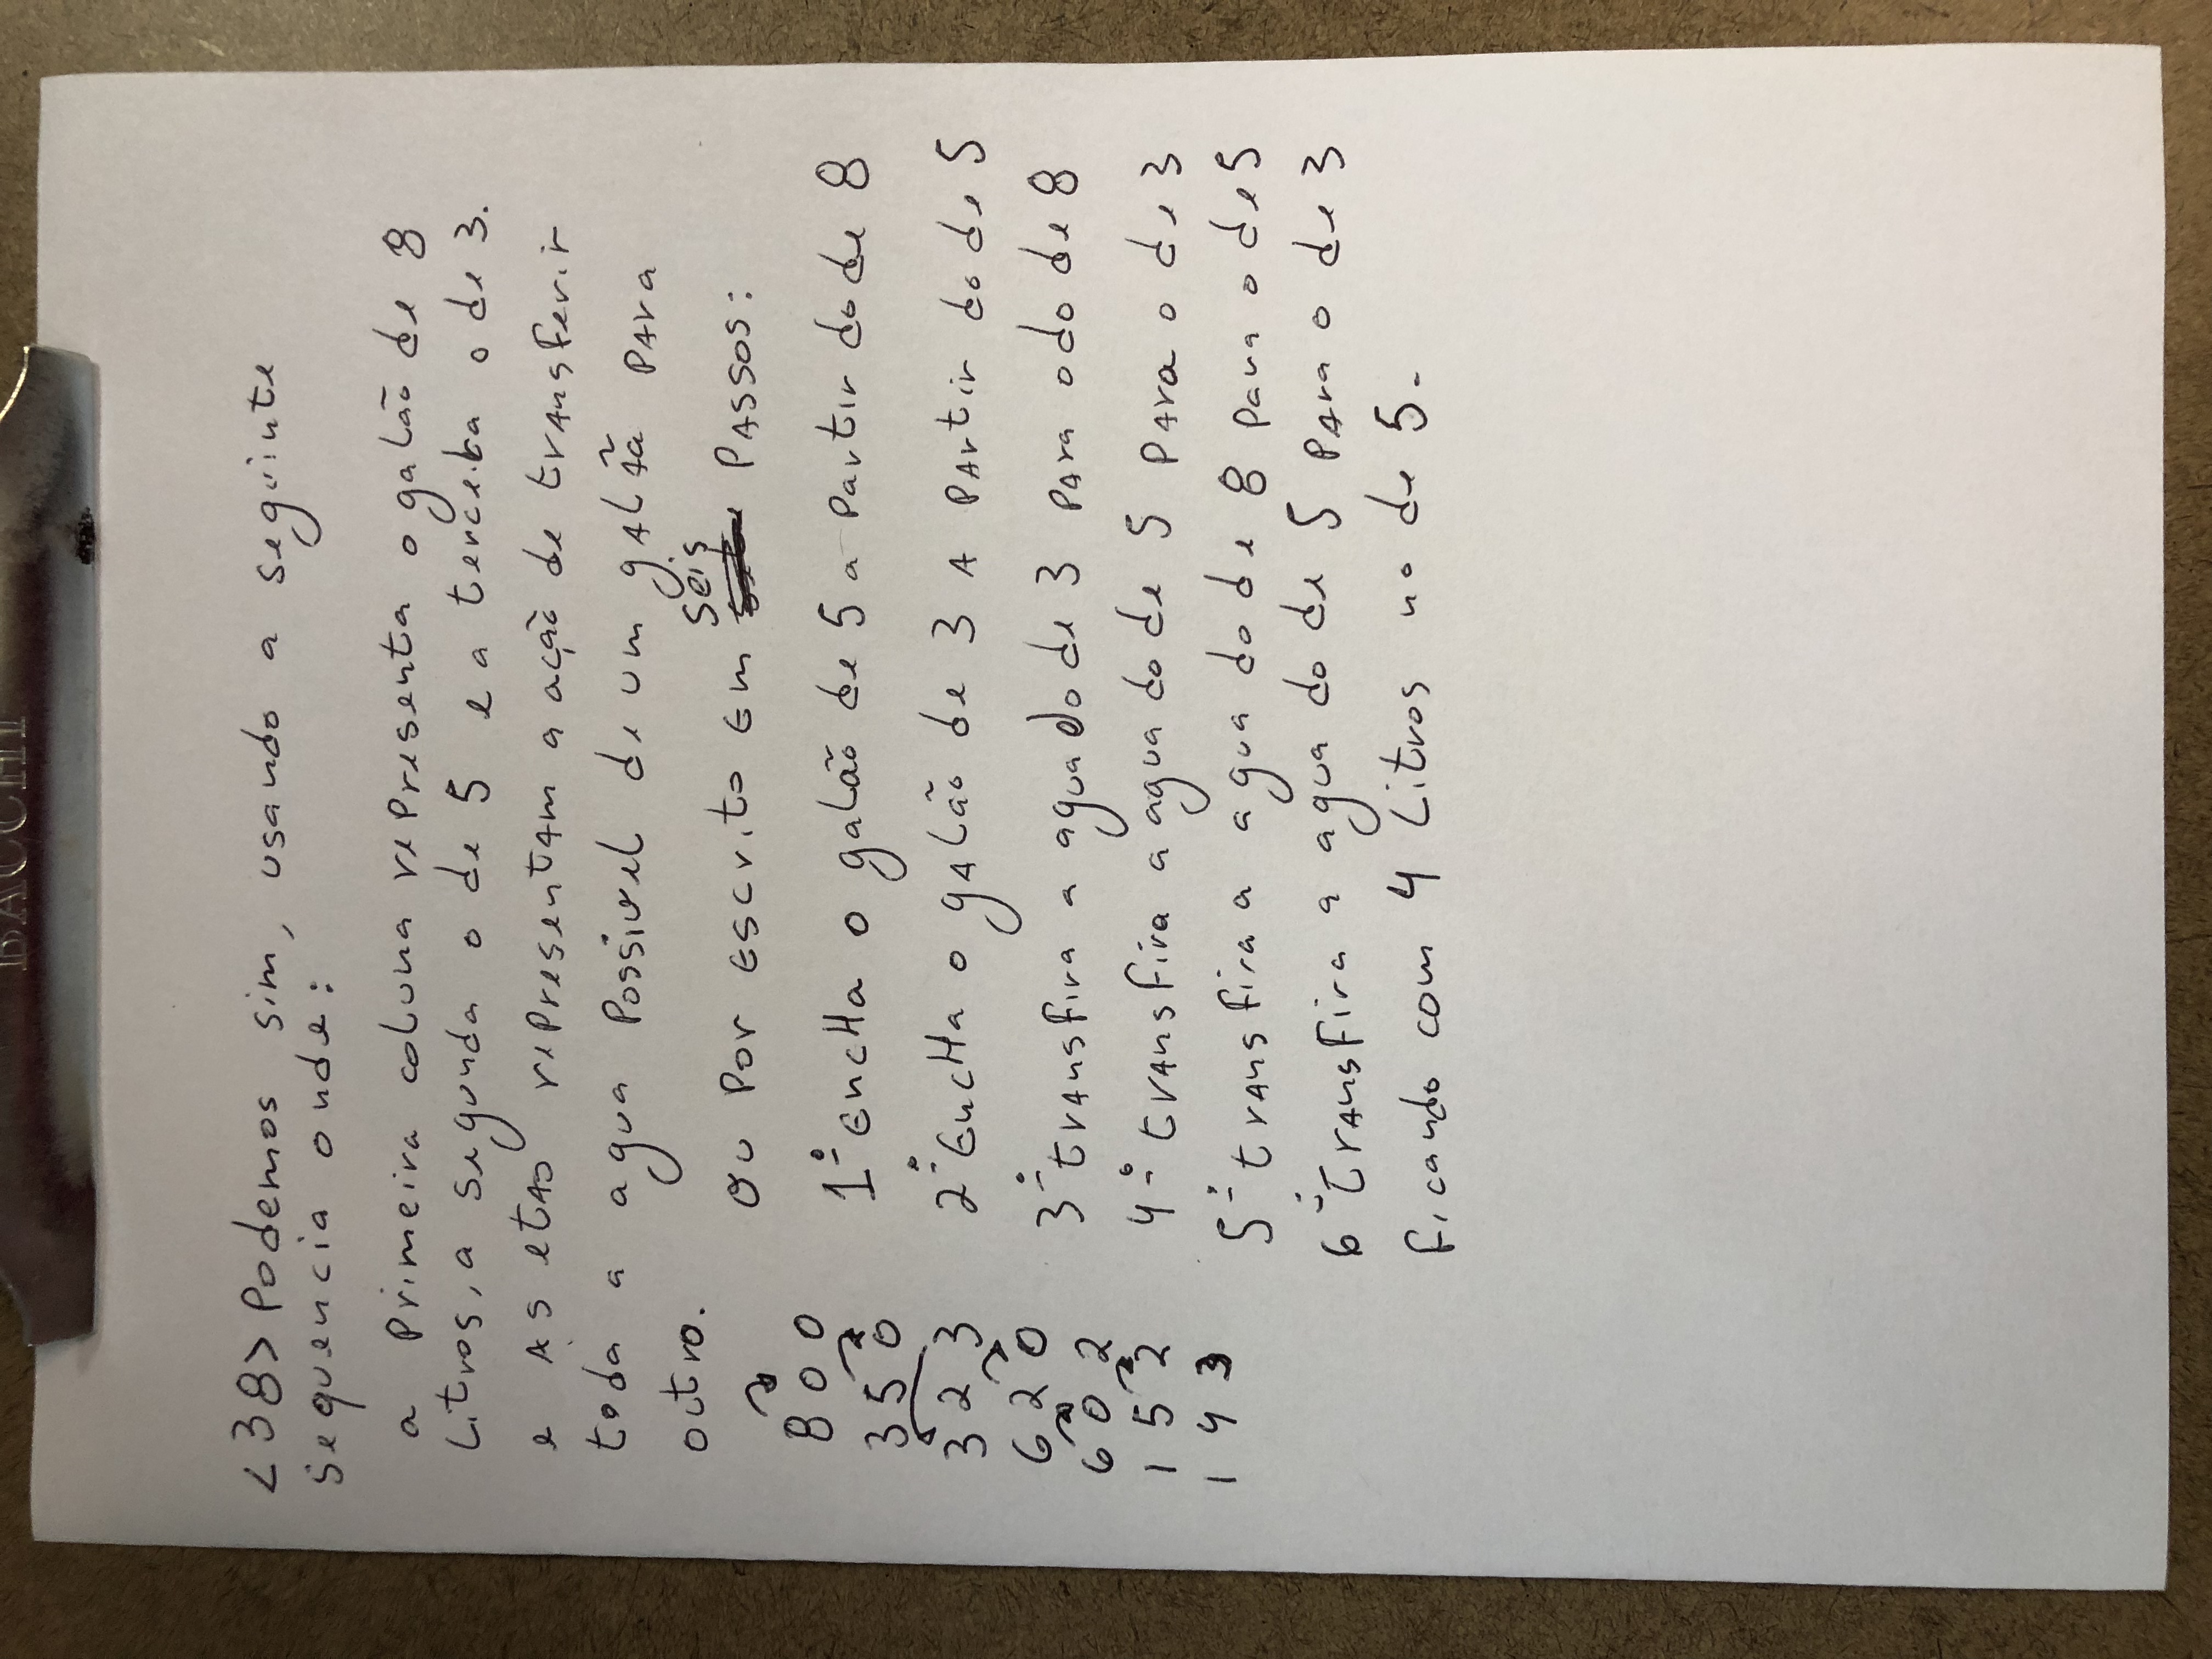 BACCHI
<38> Podemos sim, usando a seguinte
sequencia onde:
a primeira coluna representa o galão de 8
Litros, a segunda o de 5 e a terceira o de 3.
e as etas representam a ação de transferir
toda a agua possivel de um galão para
outro.
ou por escrito em seis passos:
8 0 0
3 5 0
3 2 3
6 2 0
6 0 2
1 5 2
1 4 3
1º Encha o galão de 5 a partir do de 8
2º Encha o galão de 3 a partir do de 5
3º transfira a agua do de 3 para o do de 8
4º transfira a agua do de 5 para o de 3
5º transfira a agua do de 8 para o de 5
6º transfira a agua do de 5 para o de 3
ficando com 4 Litros no de 5.